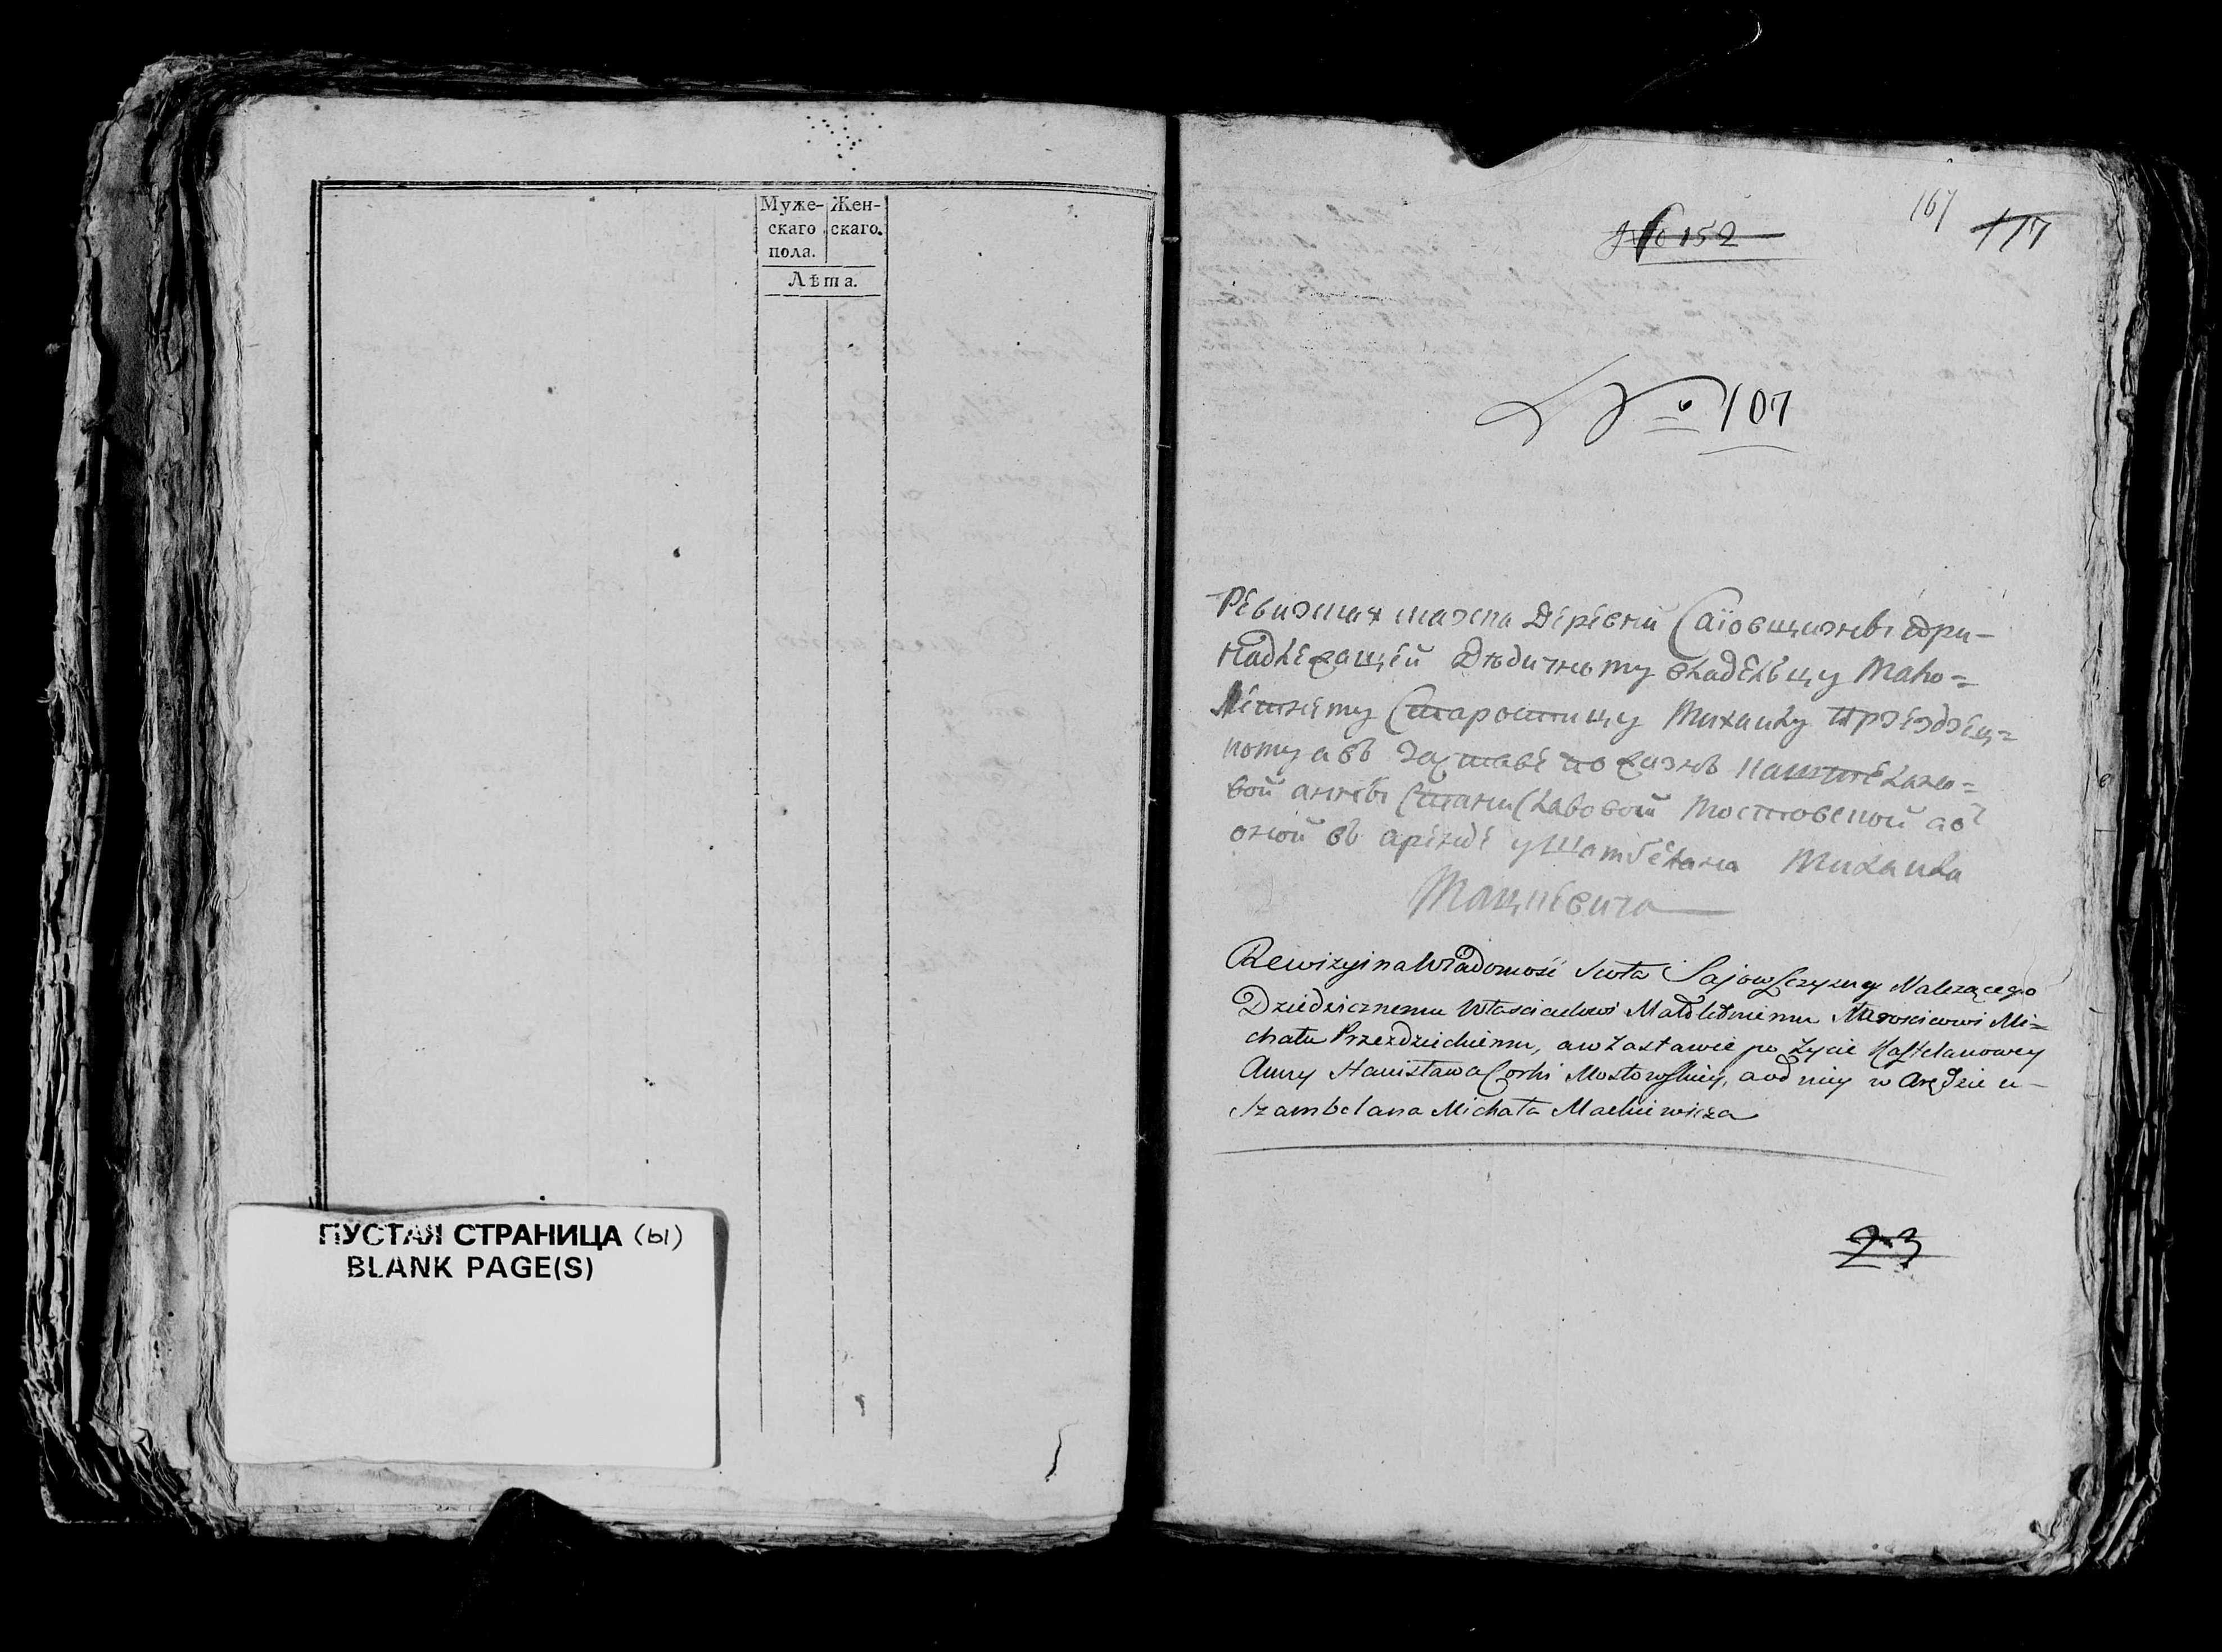 Муже- Жен-
скаго скаго.
пола.
Лѣта.
ПУСТАЯ СТРАНИЦА (ы)
BLANK PAGE(S)
167 117
№ 152
№ 107
Ревизная сказка Деревни Саiовщизны при-
надлежащей Дѣдичному владельцу Мало-
летнему Старостицу Михаилу Прзезdзец-
кому а въ заставе по жизнь каштеляно-
вой анны Станиславовой Мостовской а о
оной въ аренде у Шамбеляна Михаила
Мацкевича
Rewizyina Wiadomość Sioła Sajowszczyzny Należącego
Dziedzicznemu Właścicielowi Małoletniemu Starościcowi Mi=
chału Przezdzieckiemu, a w Zastawie po życie Kasztelanowey
Anny Stanisława Corki Mostowskiey, a od niey w Arędzie u
Szambelana Michała Mackiewicza
23